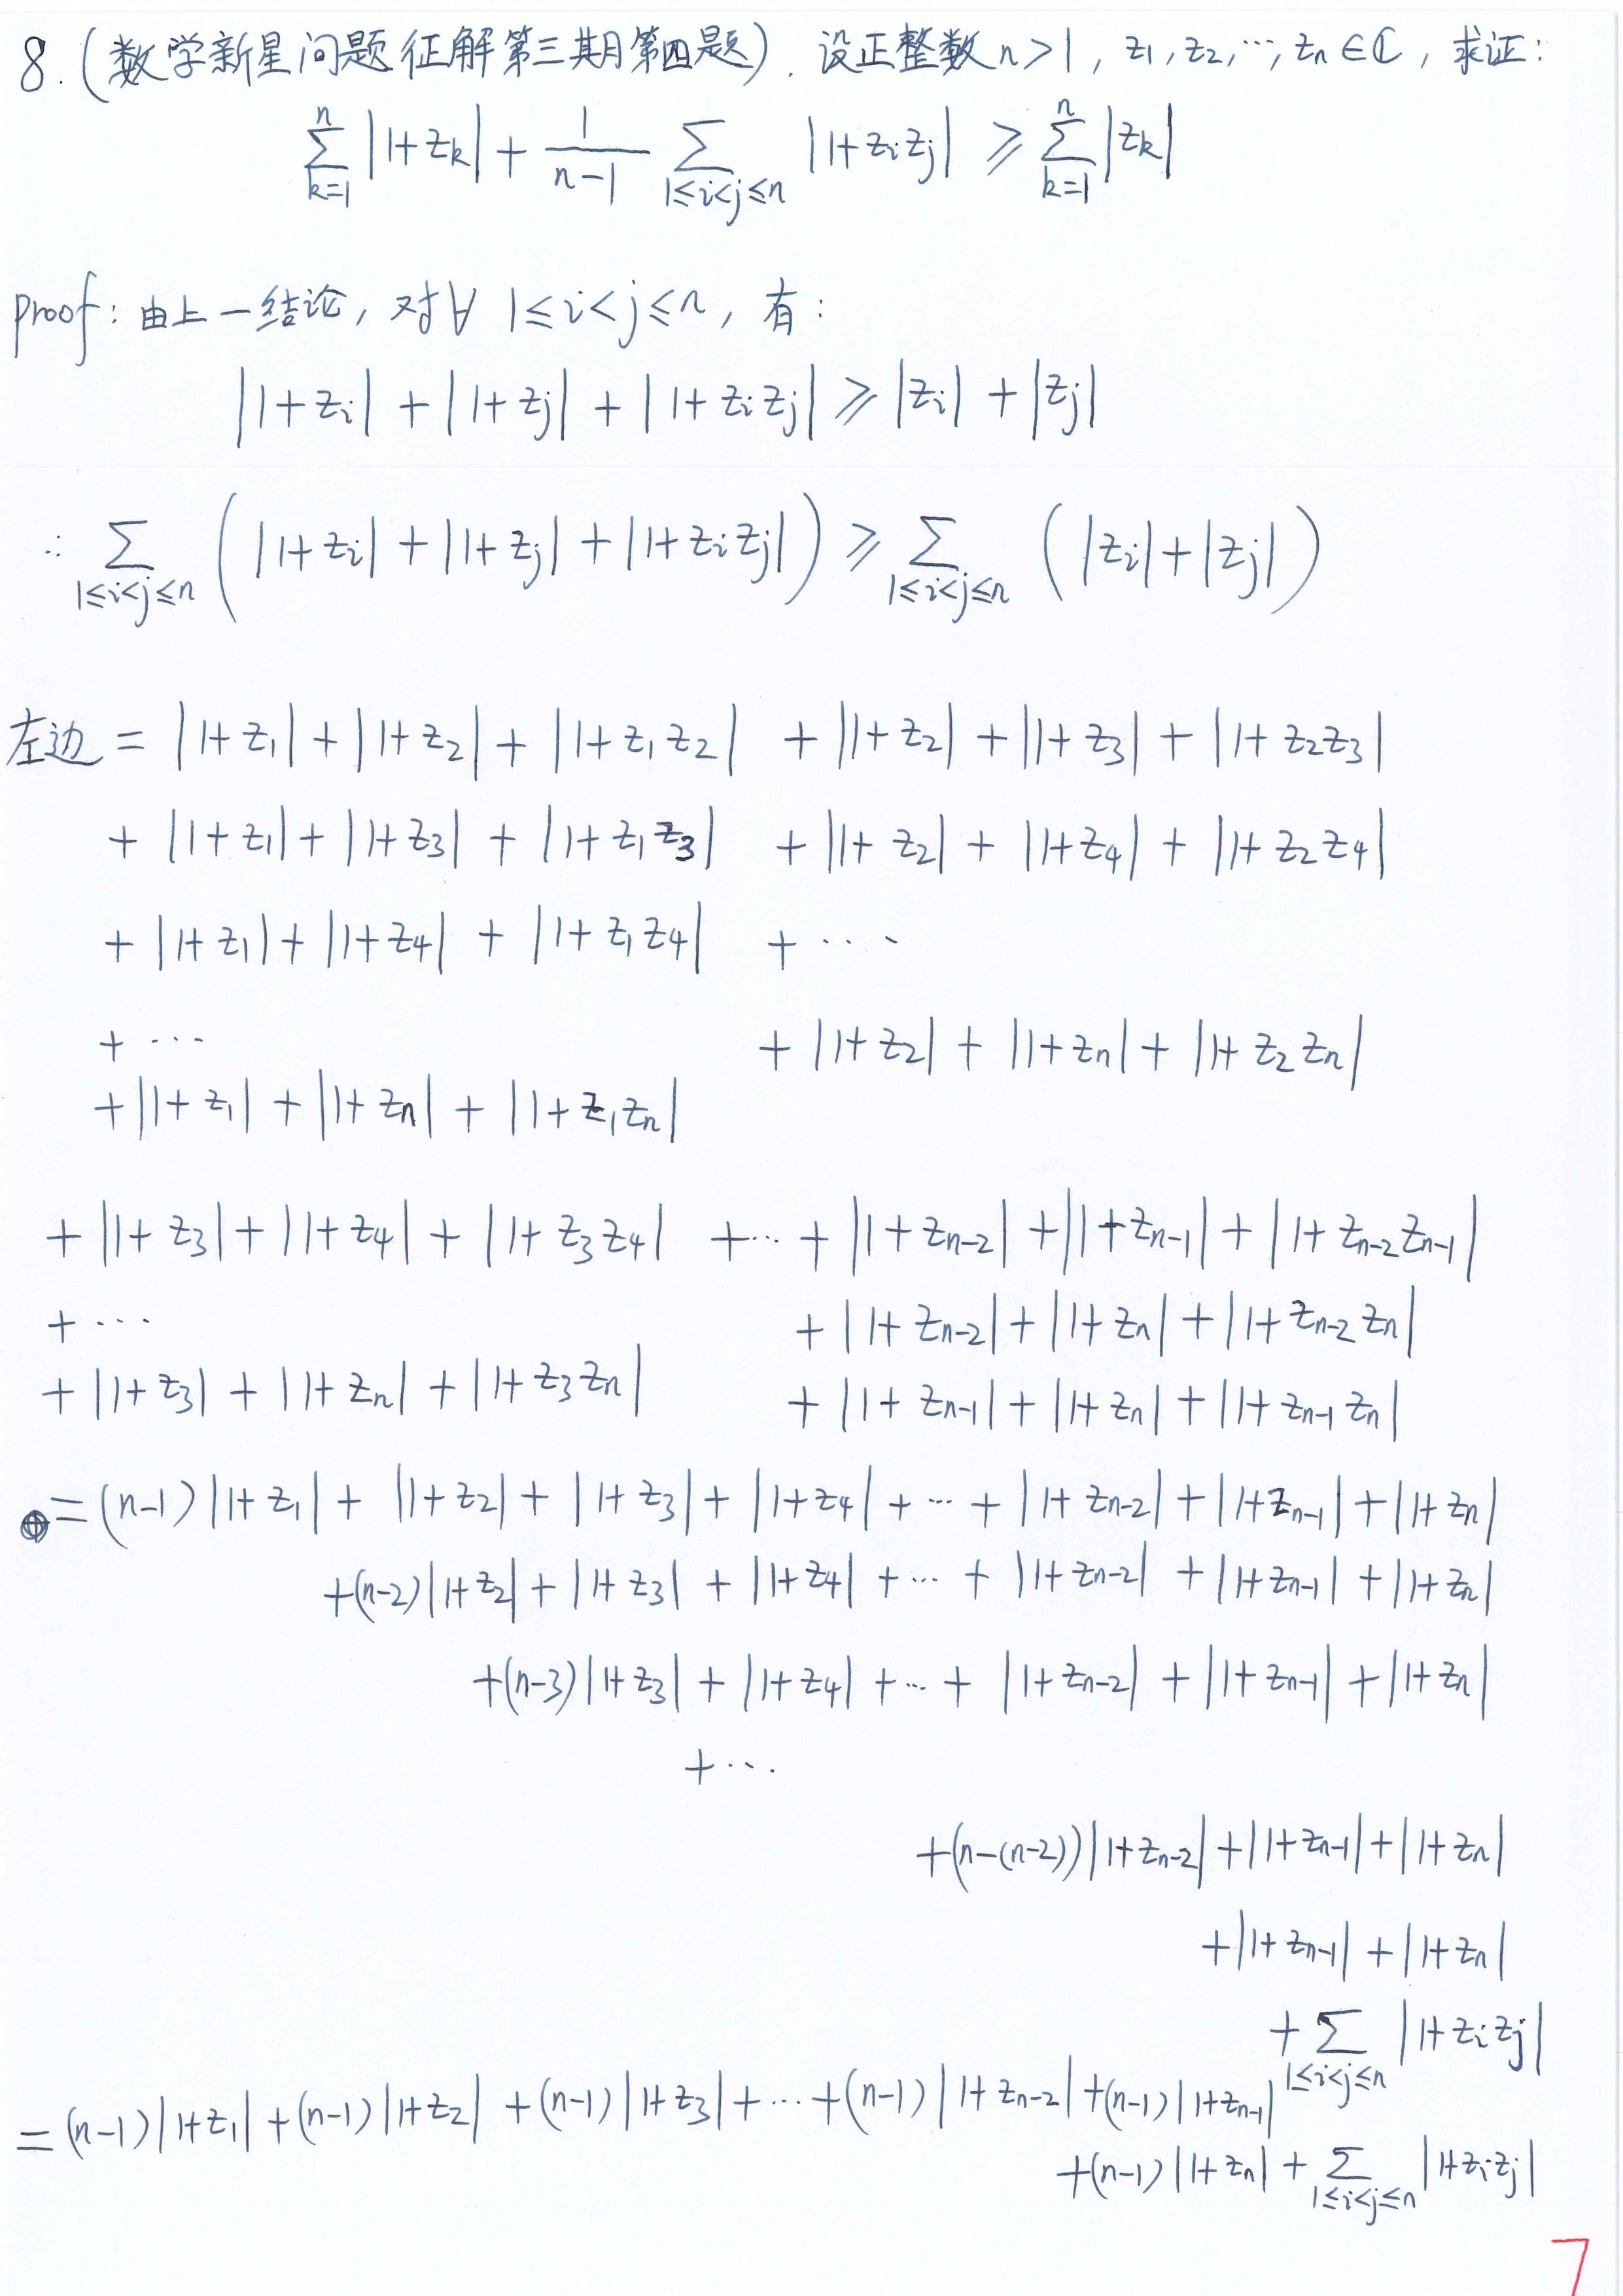 8. (数学新星问题征解第三期第四题). 设正整数 n>1, z₁, z₂, …, zₙ∈ℂ, 求证:
∑_{k=1}^{n} |1+z_k| + \frac{1}{n-1} ∑_{1≤i<j≤n} |1+z_i z_j| ≥ ∑_{k=1}^{n} |z_k|
proof: 由上一结论, 对∀ 1≤i<j≤n, 有:
|1+z_i| + |1+z_j| + |1+z_i z_j| ≥ |z_i| + |z_j|
∴ ∑_{1≤i<j≤n} ( |1+z_i| + |1+z_j| + |1+z_i z_j| ) ≥ ∑_{1≤i<j≤n} ( |z_i| + |z_j| )
左边 = |1+z₁| + |1+z₂| + |1+z₁z₂| + |1+z₂| + |1+z₃| + |1+z₂z₃|
+ |1+z₁| + |1+z₃| + |1+z₁z₃| + |1+z₂| + |1+z₄| + |1+z₂z₄|
+ |1+z₁| + |1+z₄| + |1+z₁z₄| + ⋯
+ ⋯ + |1+z₂| + |1+zₙ| + |1+z₂zₙ|
+ |1+z₁| + |1+zₙ| + |1+z₁zₙ|
+ |1+z₃| + |1+z₄| + |1+z₃z₄| + ⋯ + |1+z_{n-2}| + |1+z_{n-1}| + |1+z_{n-2}z_{n-1}|
+ ⋯ + |1+z_{n-2}| + |1+zₙ| + |1+z_{n-2}zₙ|
+ |1+z₃| + |1+zₙ| + |1+z₃zₙ| + |1+z_{n-1}| + |1+zₙ| + |1+z_{n-1}zₙ|
= (n-1)|1+z₁| + |1+z₂| + |1+z₃| + |1+z₄| + ⋯ + |1+z_{n-2}| + |1+z_{n-1}| + |1+zₙ|
+(n-2)|1+z₂| + |1+z₃| + |1+z₄| + ⋯ + |1+z_{n-2}| + |1+z_{n-1}| + |1+zₙ|
+(n-3)|1+z₃| + |1+z₄| + ⋯ + |1+z_{n-2}| + |1+z_{n-1}| + |1+zₙ|
+ ⋯
+(n-(n-2))|1+z_{n-2}| + |1+z_{n-1}| + |1+zₙ|
+ |1+z_{n-1}| + |1+zₙ|
+ ∑_{1≤i<j≤n} |1+z_i z_j|
= (n-1)|1+z₁| + (n-1)|1+z₂| + (n-1)|1+z₃| + ⋯ + (n-1)|1+z_{n-2}| + (n-1)|1+z_{n-1}|
+(n-1)|1+zₙ| + ∑_{1≤i<j≤n} |1+z_i z_j|
7